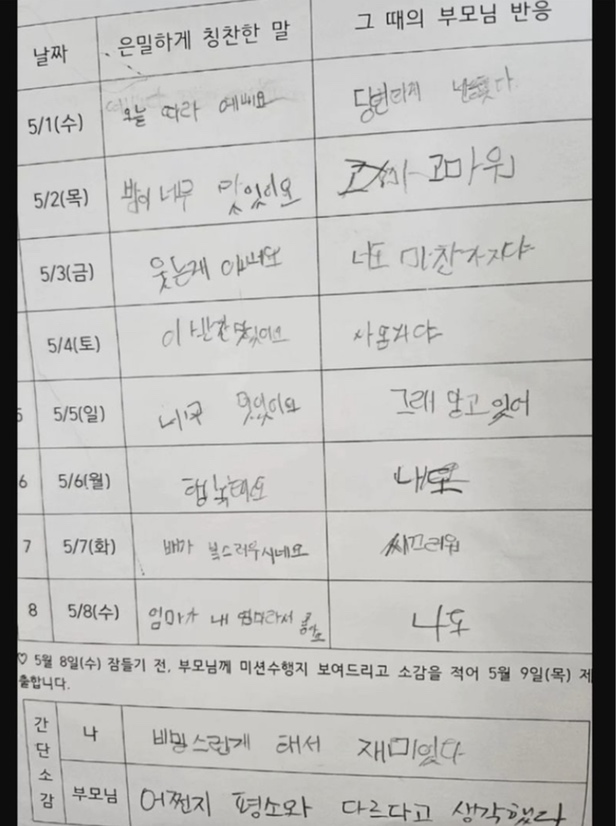 날짜 은밀하게 칭찬한 말 그 때의 부모님 반응
5/1(수) 오늘 따라 예뻐요
5/2(목) 밥이 너무 맛있어요 고마워
5/3(금) 웃는게 이뻐요 너도 마찬가지다
5/4(토) 사온거다
5 5/5(일) 너무 멋있어요 그래 알고 있어
6 5/6(월) 내도
7 5/7(화) 배가 복스러우시네요 씨끄러워
8 5/8(수) 엄마가 내 엄마라서 좋아요 나도
♡ 5월 8일(수) 잠들기 전, 부모님께 미션수행지 보여드리고 소감을 적어 5월 9일(목) 제
출합니다.
간단소감
나 비밍스럽게 해서 재미있다
부모님 어쩐지 평소와 다르다고 생각했다